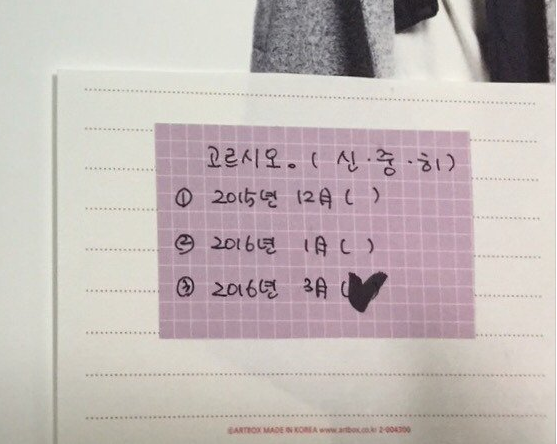 고르시오。( 신·중·히)
① 2015년 12月 ( )
② 2016년 1月 ( )
③ 2016년 3月 (♥
©ARTBOX MADE IN KOREA www.artbox.co.kr 2-004396